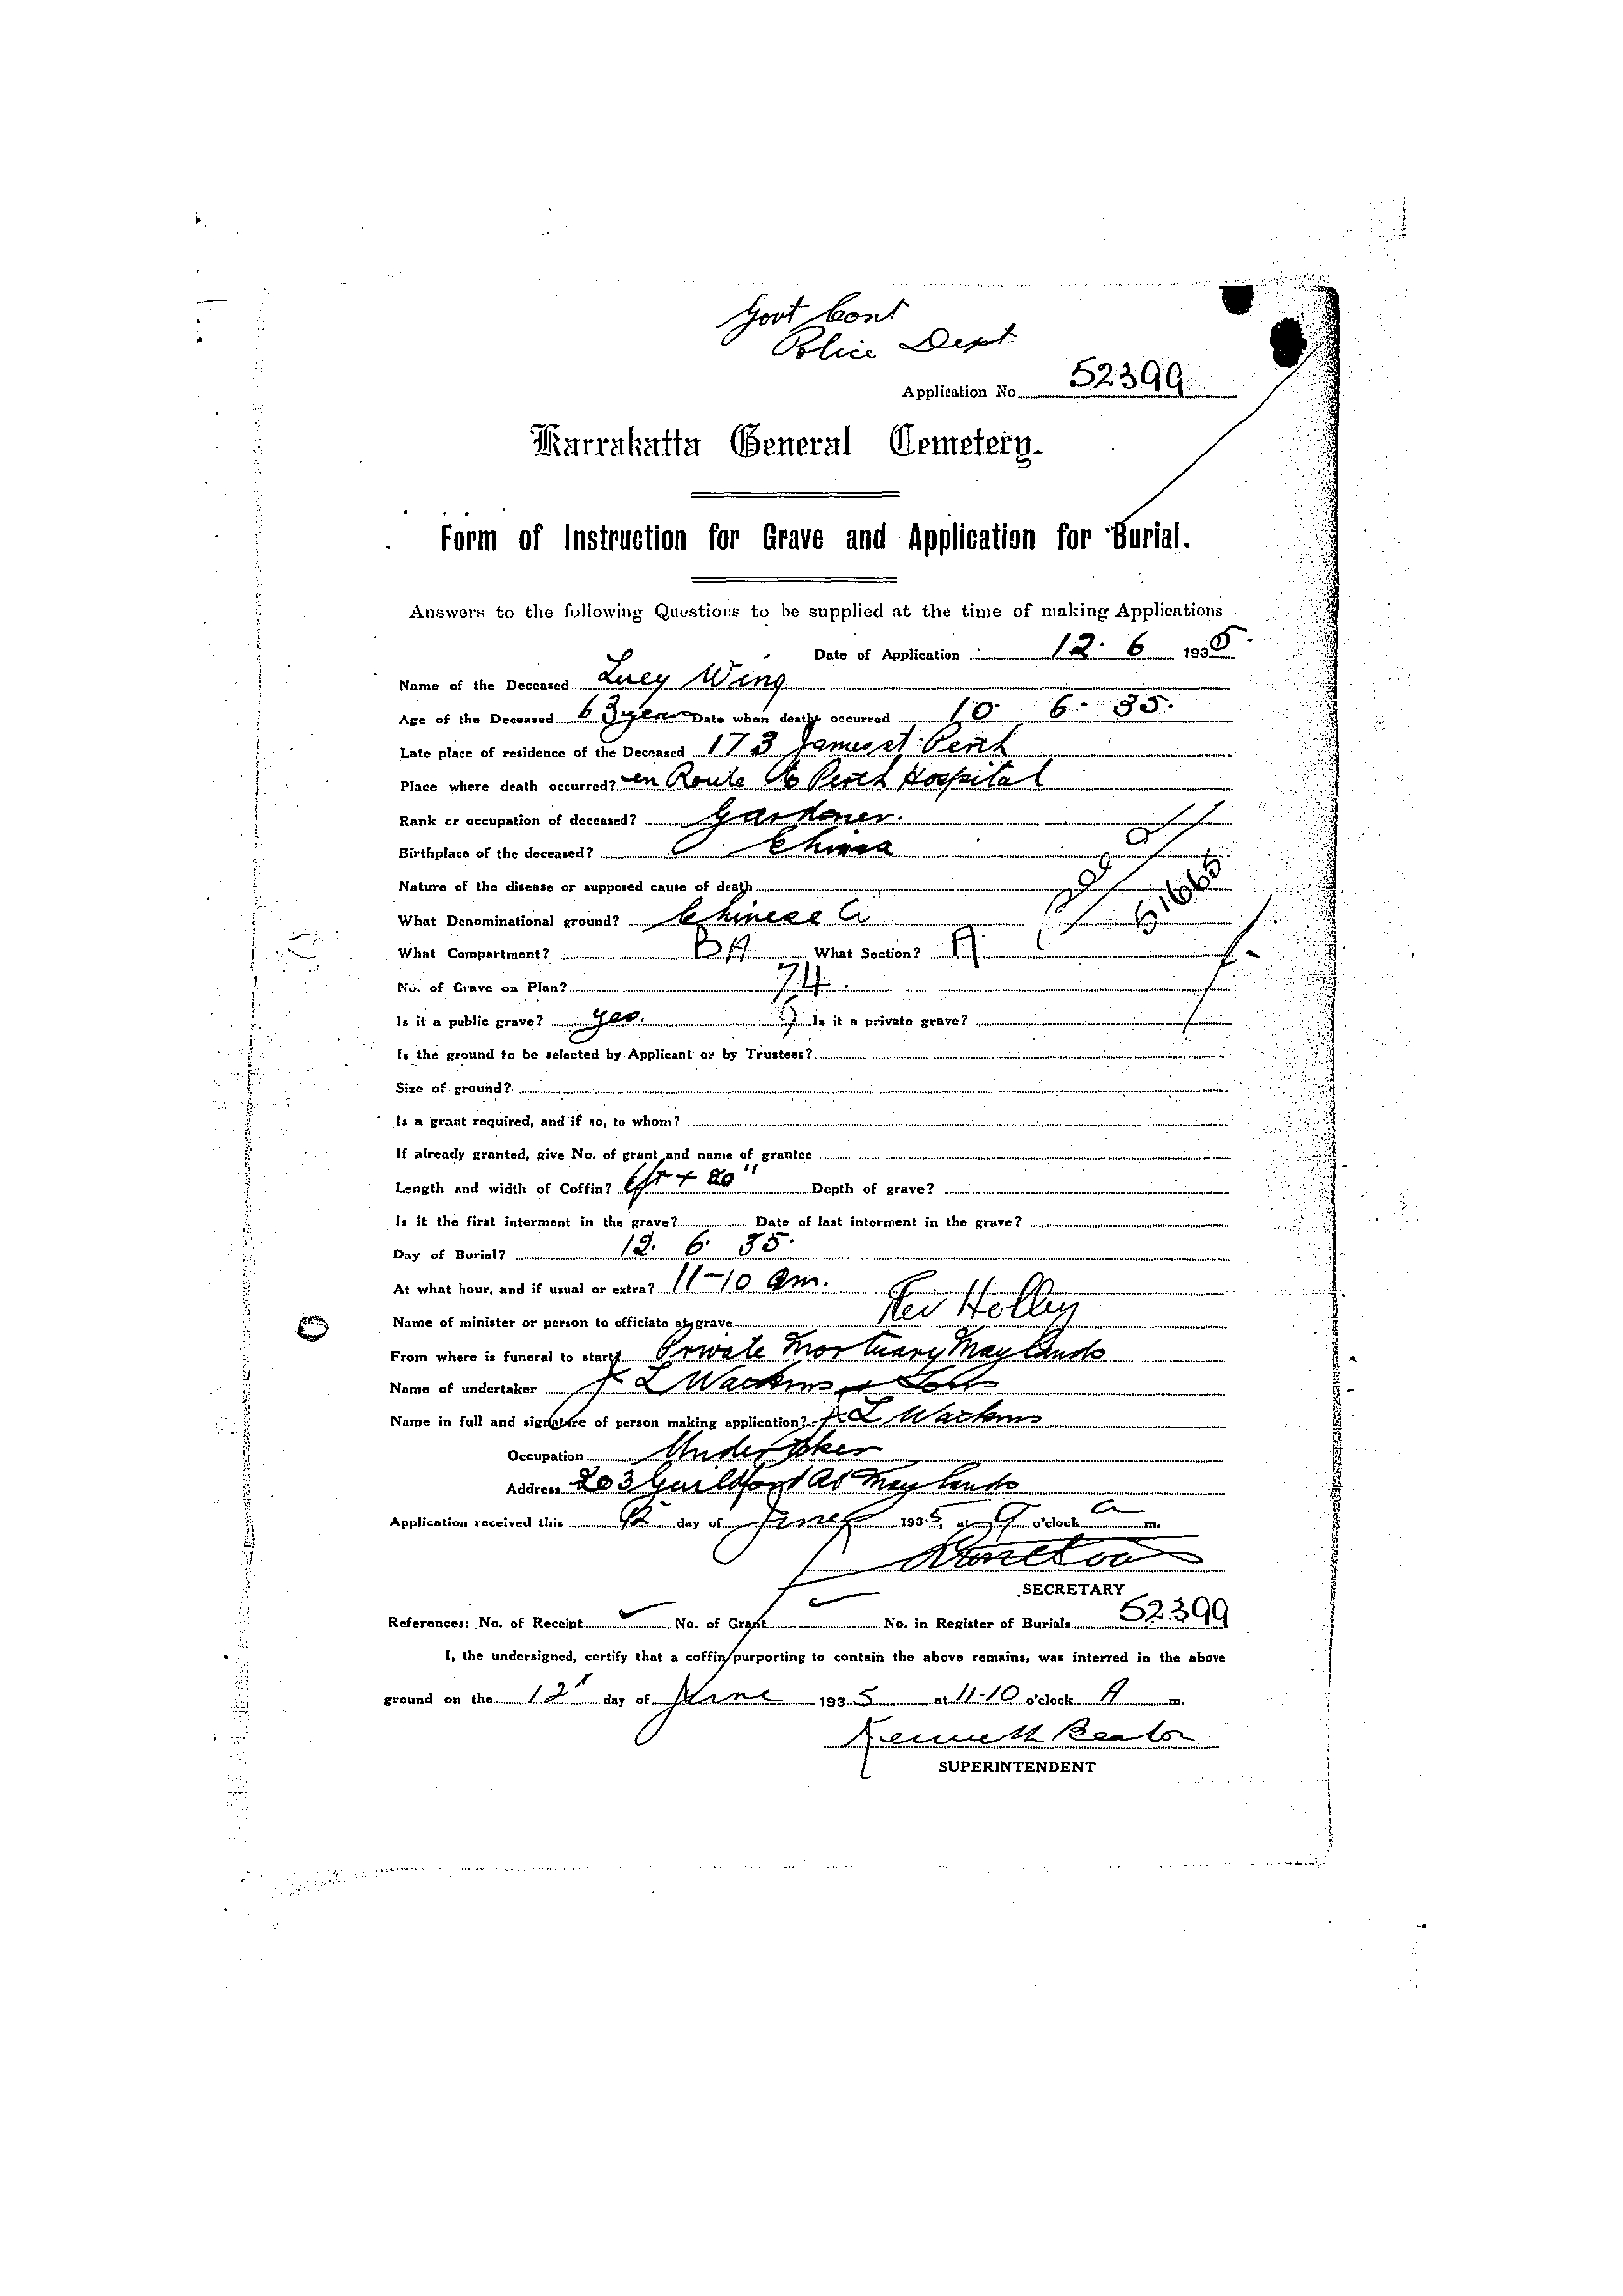 Govt Cont
Police Dept
Application No. 52399
Karrakatta General Cemetery.
Form of Instruction for Grave and Application for Burial.
Answers to the following Questions to be supplied at the time of making Applications
Date of Application 12. 6 1935
Name of the Deceased Lucy Wing
Age of the Deceased 63 years Date when death occurred 10. 6. 35.
Late place of residence of the Deceased 173 James st Perth
Place where death occurred? en Route to Perth Hospital
Rank or occupation of deceased? Gardener.
Birthplace of the deceased? China
Nature of the disease or supposed cause of death
What Denominational ground? Chinese
51665
What Compartment? BA What Section? A
No. of Grave on Plan? 74.
Is it a public grave? yes. Is it a private grave?
Is the ground to be selected by Applicant or by Trustees?
Size of ground?
Is a grant required, and if so, to whom?
If already granted, give No. of grant and name of grantee
Length and width of Coffin? 6ft + 20" Depth of grave?
Is it the first interment in the grave? Date of last interment in the grave?
Day of Burial? 12. 6. 35.
At what hour, and if usual or extra? 11-10 am.
Name of minister or person to officiate at grave Rev Holley
From where is funeral to start? Private Mortuary Maylands
Name of undertaker
Name in full and signature of person making application?
Occupation Undertaker
Address 203 Guildford Maylands
Application received this 12 day of June 1935, at 9 o'clock a m.
SECRETARY
References: No. of Receipt No. of Grant No. in Register of Burials 52399
I, the undersigned, certify that a coffin purporting to contain the above remains, was interred in the above
ground on the 12 day of June 1935 at 11-10 o'clock A m.
Kenneth Beaton
SUPERINTENDENT